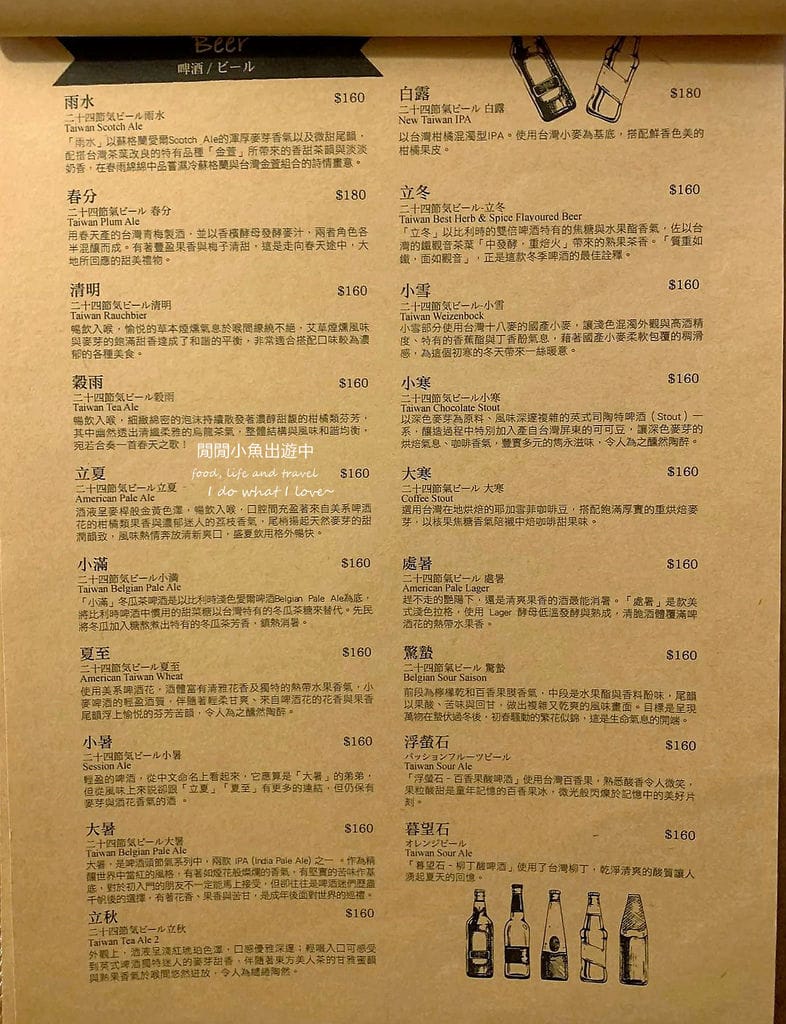 Beer
啤酒 / ビール
雨水 $160
二十四節気ビール雨水
Taiwan Scotch Ale
「雨水」以蘇格蘭愛爾Scotch Ale的渾厚麥芽香氣以及微甜尾韻，
配搭台灣茶葉改良的特有品種「金萱」所帶來的香甜茶韻與淡淡
奶香，在春雨綿綿中品嘗濕冷蘇格蘭與台灣金萱組合的詩情畫意。
春分 $180
二十四節氣ビール 春分
Taiwan Plum Ale
用春天產的台灣青梅製酒，並以香檳酵母發酵麥汁，兩者角色各
半混釀而成。有著豐盈果香與梅子清甜，這是走向春天途中，大
地所回應的甜美禮物。
清明 $160
二十四節気ビール清明
Taiwan Rauchbier
暢飲入喉，愉悅的草本煙燻氣息於喉間繚繞不絕，艾草煙燻風味
與麥芽的飽滿甜香達成了和諧的平衡，非常適合搭配口味較為濃
郁的各種美食。
穀雨 $160
二十四節気ビール穀雨
Taiwan Tea Ale
暢飲入喉，細緻綿密的泡沫持續散發著濃醇甜馥的柑橘類芬芳，
其中幽然透出清纖柔雅的烏龍茶氣，整體結構與風味和諧均衡，
宛若合奏一首春天之歌！
閒閒小魚出遊中
food, life and travel
I do what I love~
立夏 $160
二十四節気ビール立夏
American Pale Ale
酒液呈麥桿般金黃色澤，暢飲入喉，口腔間充盈著來自美系啤酒
花的柑橘類果香與濃郁迷人的荔枝香氣，尾梢揚起天然麥芽的甜
潤韻致，風味熱情奔放清新爽口，盛夏飲用格外暢快。
小滿 $160
二十四節気ビール小満
Taiwan Belgian Pale Ale
「小滿」冬瓜茶啤酒是以比利時淺色愛爾啤酒Belgian Pale Ale為底，
將比利時啤酒中慣用的甜菜糖以台灣特有的冬瓜茶糖來替代。先民
將冬瓜加入糖熬煮出特有的冬瓜茶芳香，鎮熱消暑。
夏至 $160
二十四節気ビール夏至
American Taiwan Wheat
使用美系啤酒花，酒體富有清雅花香及獨特的熱帶水果香氣，小
麥啤酒的輕盈酒質，伴隨著輕柔甘爽、來自啤酒花的花香與果香
尾韻浮上愉悅的芬芳苦韻，令人為之醺然陶醉。
小暑 $160
二十四節気ビール小暑
Session Ale
輕盈的啤酒，從中文命名上看起來，它應算是「大暑」的弟弟，
但從風味上來說卻跟「立夏」「夏至」有更多的連結，但仍保有
麥芽與酒花香氣的酒 。
大暑 $160
二十四節気ビール大暑
Taiwan Belgian Pale Ale
大暑，是啤酒頭節氣系列中，兩款 IPA (India Pale Ale) 之一 。作為精
釀世界中當紅的風格，有著如煙花般燦爛的香氣，有堅實的苦味作基
底，對於初入門的朋友不一定能馬上接受，但卻往往是啤酒迷們歷盡
千帆後的選擇，有著花香、果香與苦甘，是成年後面對世界的巡禮。
立秋 $160
二十四節気ビール立秋
Taiwan Tea Ale 2
外觀上，酒液呈淺紅琥珀色澤，口感優雅深邃；輕啜入口可感受
到英式啤酒獨特迷人的麥芽甜香，伴隨著東方美人茶的甘雅蜜韻
與熟果香氣於喉間悠然迸放，令人為繾綣陶然。
白露 $180
二十四節気ビール 白露
New Taiwan IPA
以台灣柑橘混濁型IPA。使用台灣小麥為基底，搭配鮮香色美的
柑橘果皮。
立冬 $160
二十四節氣ビール-立冬
Taiwan Best Herb & Spice Flavoured Beer
「立冬」以比利時的雙倍啤酒特有的焦糖與水果酯香氣，佐以台
灣的鐵觀音茶葉「中發酵，重焙火」帶來的熟果茶香。「質重如
鐵，面如觀音」，正是這款冬季啤酒的最佳詮釋。
小雪 $160
二十四節気ビール-小雪
Taiwan Weizenbock
小雪部分使用台灣十八麥的國產小麥，讓淺色混濁外觀與高酒精
度、特有的香蕉酯與丁香酚氣息，藉著國產小麥柔軟包覆的稠滑
感，為這個初寒的冬天帶來一絲暖意。
小寒 $160
二十四節気ビール小寒
Taiwan Chocolate Stout
以深色麥芽為原料、風味深邃複雜的英式司陶特啤酒（Stout）一
系，釀造過程中特別加入產自台灣屏東的可可豆，讓深色麥芽的
烘焙氣息、咖啡香氣，豐實多元的雋永滋味，令人為之醺然陶醉。
大寒 $160
二十四節気ビール 大寒
Coffee Stout
選用台灣在地烘焙的耶加雪菲咖啡豆，搭配飽滿厚實的重烘焙麥
芽，以核果焦糖香氣陪襯中焙咖啡甜果味。
處暑 $160
二十四節気ビール 處暑
American Pale Lager
趕不走的艷陽下，還是清爽果香的酒最能消暑。「處暑」是款美
式淺色拉格，使用 Lager 酵母低溫發酵與熟成，清脆酒體覆滿啤
酒花的熱帶水果香。
驚蟄 $160
二十四節気ビール 驚蟄
Belgian Sour Saison
前段為檸檬乾和百香果膜香氣，中段是水果酯與香料酚味，尾韻
以果酸、苦味與回甘，做出複雜又乾爽的風味畫面。目標是呈現
萬物在蟄伏過冬後，初春騷動的繁花似錦，這是生命氣息的開端。
浮螢石 $160
パッションフルーツビール
Taiwan Sour Ale
「浮螢石 - 百香果酸啤酒」使用台灣百香果，熟悉酸香令人微笑，
果粒酸甜是童年記憶的百香果冰，微光般閃爍於記憶中的美好片
刻。
暮望石 $160
オレンジビール
Taiwan Sour Ale
「暮望石 - 柳丁酸啤酒」使用了台灣柳丁，乾淨清爽的酸質讓人
湧起夏天的回憶。